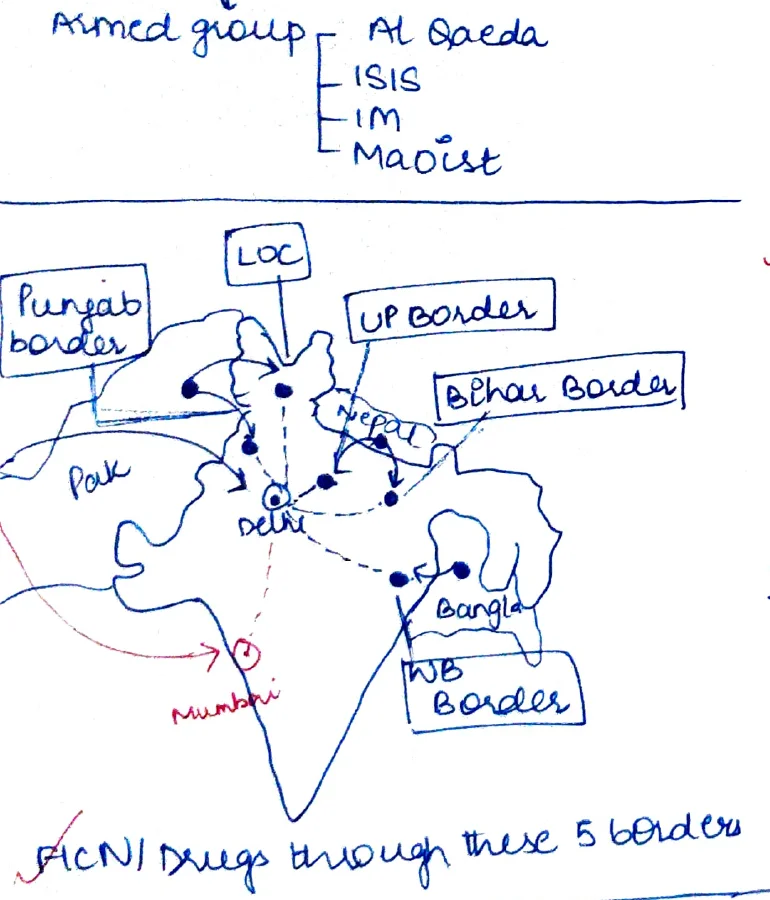 Armed group - Al Qaeda
ISIS
IM
Maoist
LOC
Punjab
border
UP Border
Bihar Border
Nepal
Pak
Delhi
Bangla
WB
Border
Mumbai
FICN/Drugs through these 5 borders